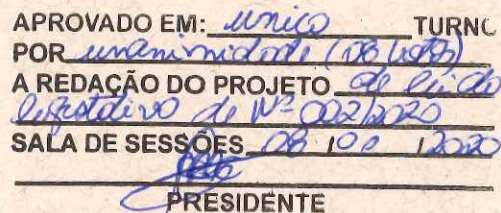 APROVADO EM: único TURNO
POR unanimidade (08 votos)
A REDAÇÃO DO PROJETO de lei do
legislativo de Nº 002/2020
SALA DE SESSÕES 08 / / 2020
PRESIDENTE